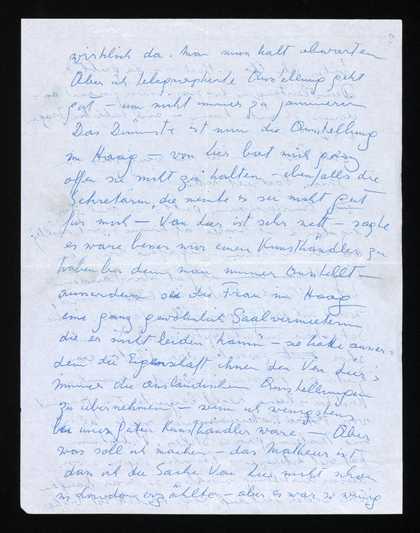 wirklich da. Man muss halt abwarten
Aber ich telegraphierte Ausstellung geht
gut – um nicht immer zu jammern
Das Dümmste ist nun die Ausstellung
im Haag – van Lier bat mich
offen sie nicht zu halten – ebenfalls die
Sekretärin, die meinte es sei nicht gut
für mich – Van Lier ist sehr nett – sagte
es wäre besser nur einen Kunsthändler zu
haben bei dem man immer ausstellt –
ausserdem sei die Frau im Haag
eine ganz gewöhnliche Saalvermieterin
die er nicht leiden kann – sie hätte ausser
dem die Eigenschaft ihnen den Van Lier's
immer die ausländischen Ausstellungen
zu übernehmen – wenn ich wenigstens
bei einem guten Kunsthändler wäre – Aber
was soll ich machen – das Malheur ist
dass ich die Sache Van Lier nicht schon
in London erzählte – aber es war so wenig